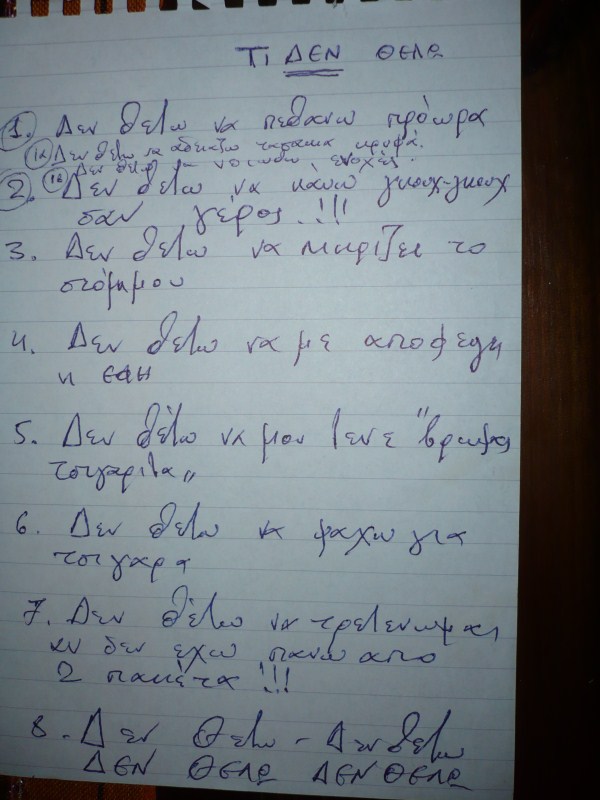 ΤΙ ΔΕΝ ΘΕΛΩ
1. Δεν θελω να πεθανω πρόωρα
1α Δεν θελω να αδειαζω τασακια κρυφά.
1β Δεν θελω να νοιωθω ενοχές.
2. Δεν θελω να κάνω γκουχ-γκουχ
σαν γέρος.!!!
3. Δεν θελω να μυριζει το
στόμα μου
4. Δεν θελω να με αποφεγη
η
5. Δεν θέλω να μου λενε "βρωμας
τσιγαριλα"
6. Δεν θελω να ψαχω για
τσιγαρα
7. Δεν θέλω να τρελενωμαι
αν δεν εχω πανω απο
2 πακέτα!!!
8. Δεν Θελω - Δεν θελω
ΔΕΝ ΘΕΛΩ ΔΕΝ ΘΕΛΩ